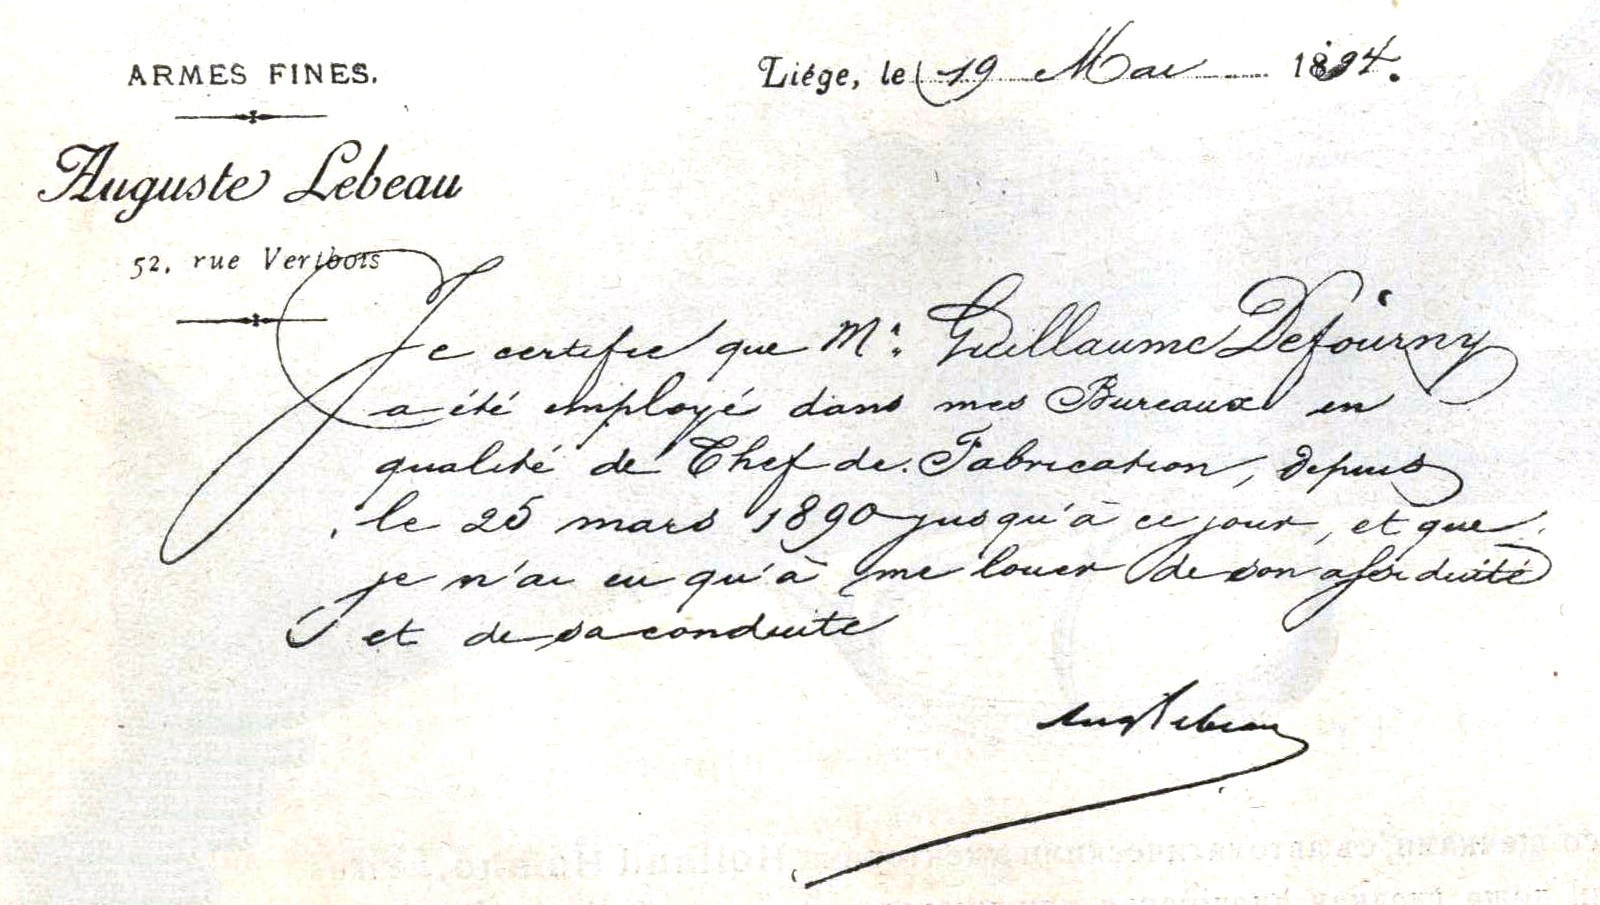 ARMES FINES.
Liége, le 19 Mai 1894.
Auguste Lebeau
52, rue Vertbois
Je certifie que Mr. Guillaume Defourny
a été employé dans mes Bureaux en
qualité de Chef de Fabrication, depuis
le 25 mars 1890 jusqu'à ce jour, et que
je n'ai eu qu'à me louer de son assiduité
et de sa conduite
Aug Lebeau